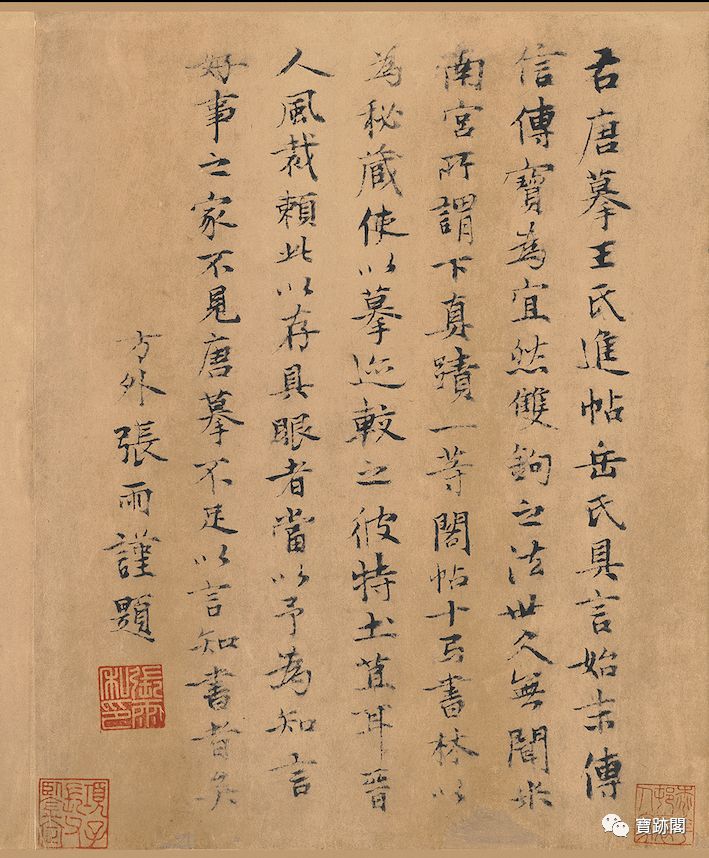 右唐摹王氏進帖岳氏具言始末傳
信傳寶為宜然雙鉤之法世久無聞米
南宮所謂下真蹟一等閣帖十弓書林以
為秘藏使以摹迹較之彼特土苴耳晉
人風裁賴此以存具眼者當以予為知言
好事之家不見唐摹不足以言知書者矣
方外張雨謹題
張雨私印
寶跡閣